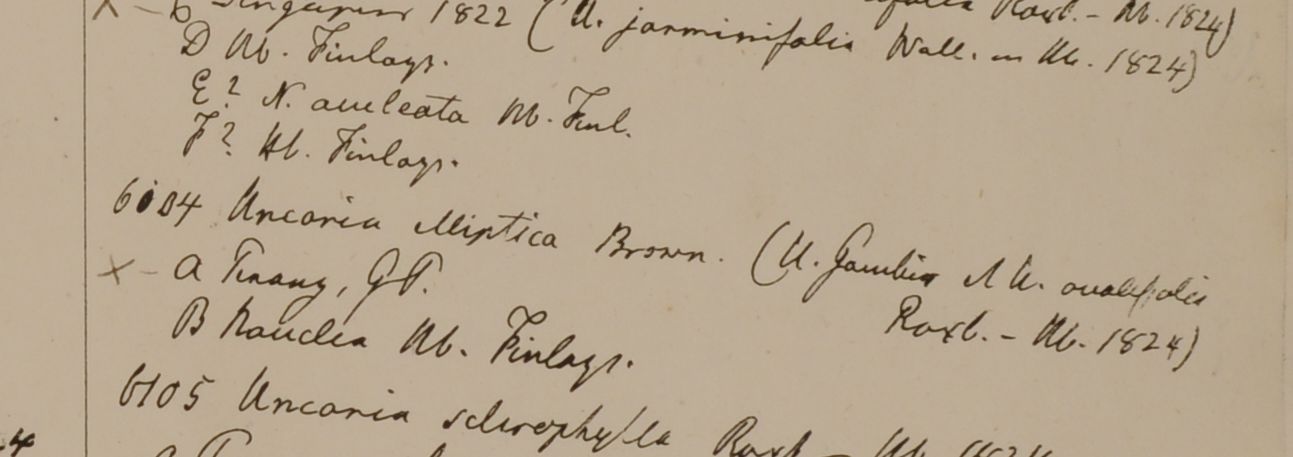 Singapur 1822 (U. jasminifolia Wall. in Hb. 1824)
Roxb. - Hb. 1824)
D Hb. Finlays.
E? N. aculeata Hb. Finl.
F? Hb. Finlays.
6104 Uncaria elliptica Brown. (U. Gambir & U. ovalifolia
Roxb. - Hb. 1824)
X - a Pinang, G.P.
B Nauclea Hb. Finlays.
6105 Uncaria sclerophylla Roxb - Hb.